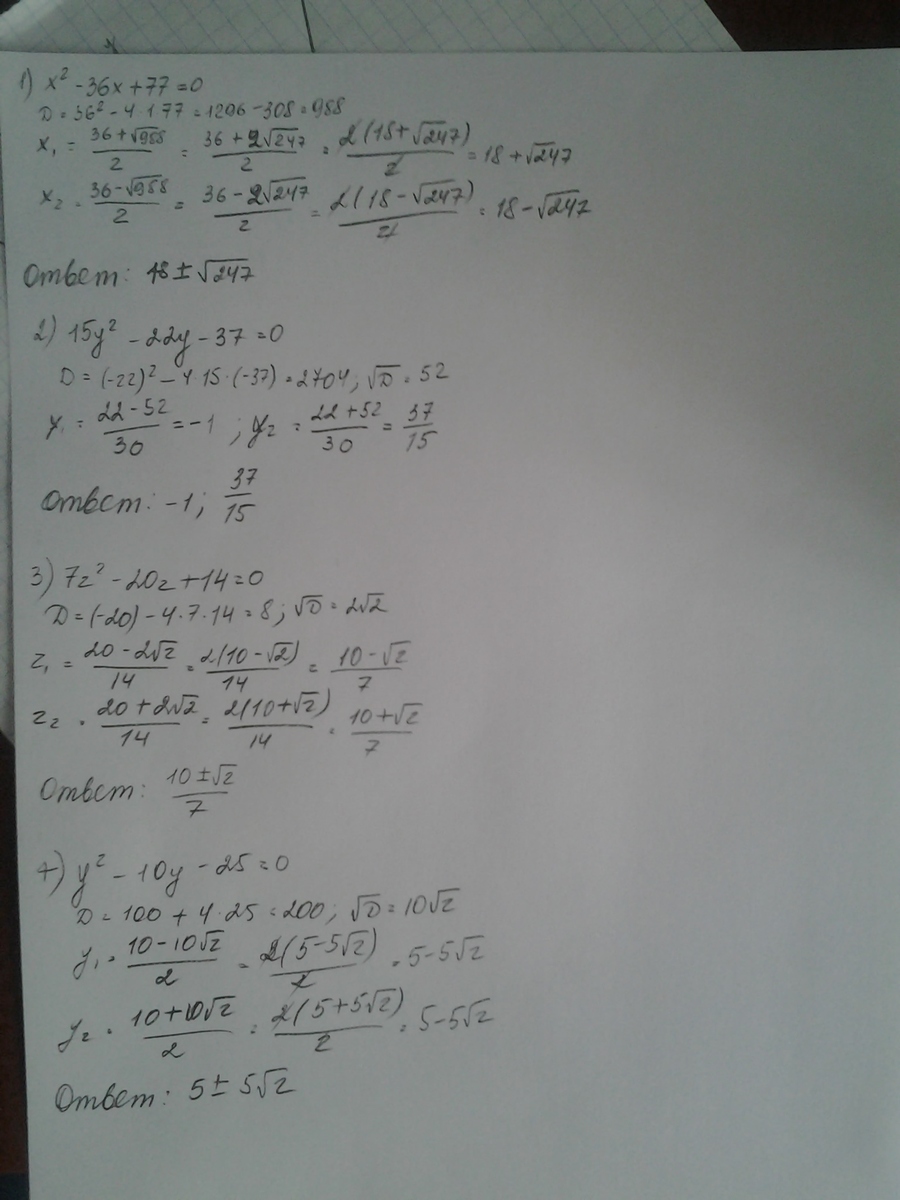 1) x² - 36x + 77 = 0
D = 36² - 4·1·77 = 1296 - 308 = 988
x₁ = (36+√988)/2 = (36+2√247)/2 = 2(18+√247)/2 = 18+√247
x₂ = (36-√988)/2 = (36-2√247)/2 = 2(18-√247)/2 = 18-√247
Ответ: 18 ± √247
2) 15y² - 22y - 37 = 0
D = (-22)² - 4·15·(-37) = 2704; √D = 52
y₁ = (22-52)/30 = -1; y₂ = (22+52)/30 = 37/15
Ответ: -1; 37/15
3) 7z² - 20z + 14 = 0
D = (-20) - 4·7·14 = 8; √D = 2√2
z₁ = (20-2√2)/14 = 2(10-√2)/14 = (10-√2)/7
z₂ = (20+2√2)/14 = 2(10+√2)/14 = (10+√2)/7
Ответ: (10±√2)/7
4) y² - 10y - 25 = 0
D = 100 + 4·25 = 200; √D = 10√2
y₁ = (10-10√2)/2 = 2(5-5√2)/2 = 5-5√2
y₂ = (10+10√2)/2 = 2(5+5√2)/2 = 5-5√2
Ответ: 5 ± 5√2